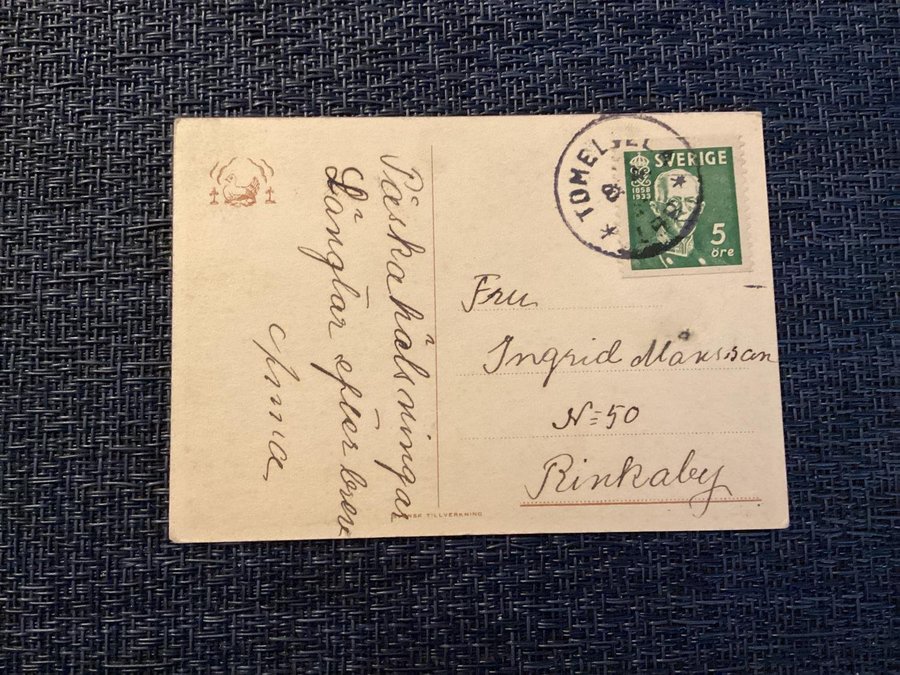 Påskahälsningar
Längtar efter brev
Anna.
SVERIGE
1858
1938
5
öre
Fru
Ingrid Månsson
N=50
Rinkaby
SVENSK TILLVERKNING